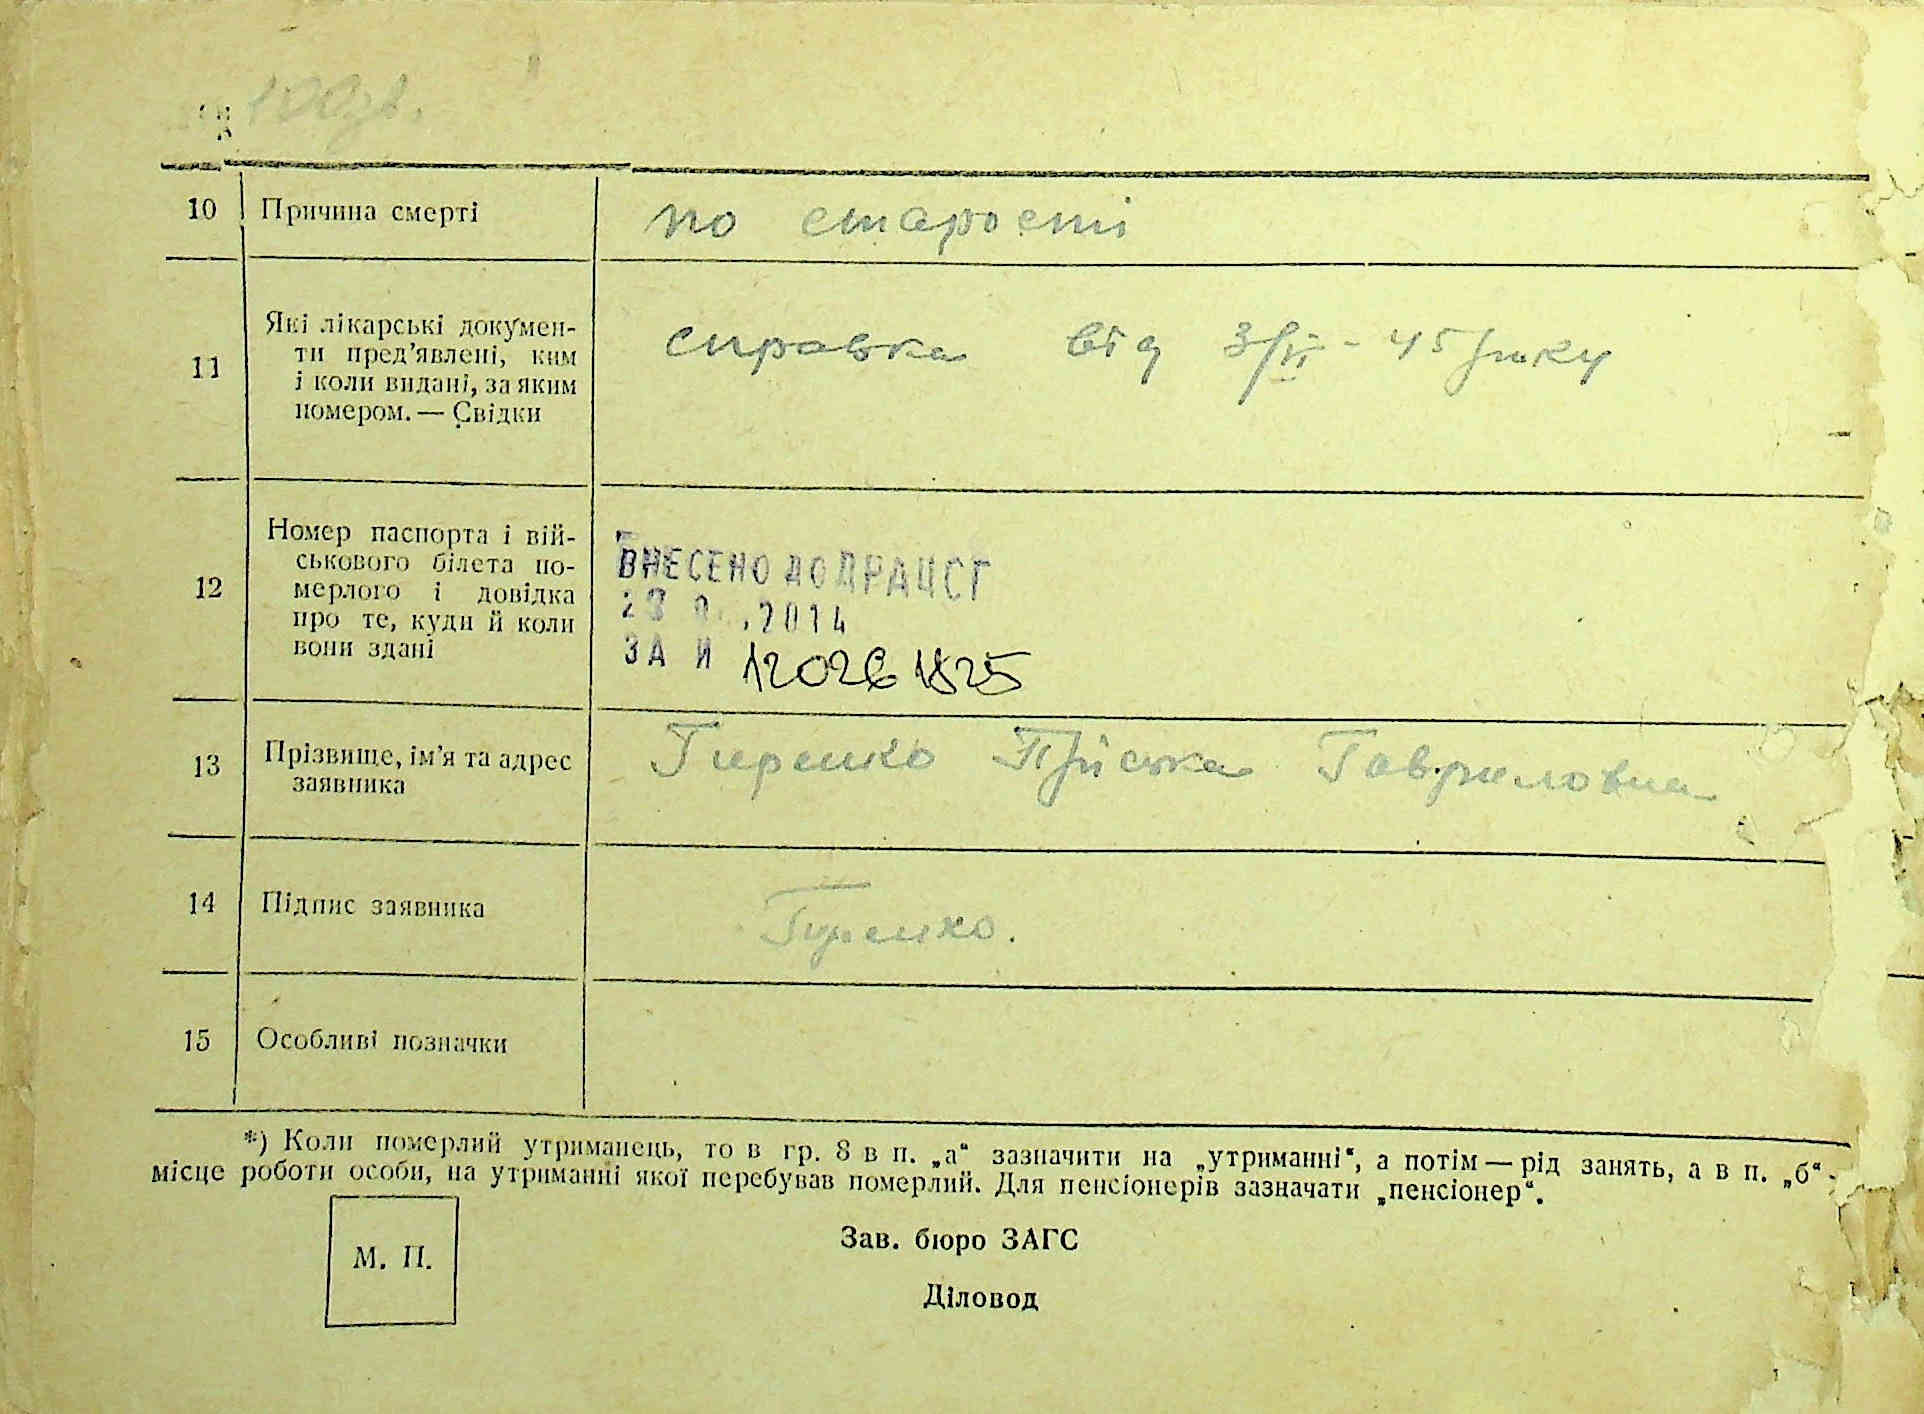 10 Причина смерті по старості
11 Які лікарські докумен-
ти пред’явлені, ким
і коли видані, за яким
номером. — Свідки
справка від 3/VI - 45 року
12 Номер паспорта і вій-
ськового білета по-
мерлого і довідка
про те, куди й коли
вони здані
ВНЕСЕНО ДО ДРАЦСГ
2014
ЗА И
13 Прізвище, ім’я та адрес
заявника
Гиренко Пріська Гавриловна
14 Підпис заявника Гиренко.
15 Особливі позначки
*) Коли померлий утриманець, то в гр. 8 в п. „а“ зазначити на „утриманні“, а потім — рід занять, а в п. „б“ -
місце роботи особи, на утриманні якої перебував померлий. Для пенсіонерів зазначати „пенсіонер“.
М. П.
Зав. бюро ЗАГС
Діловод